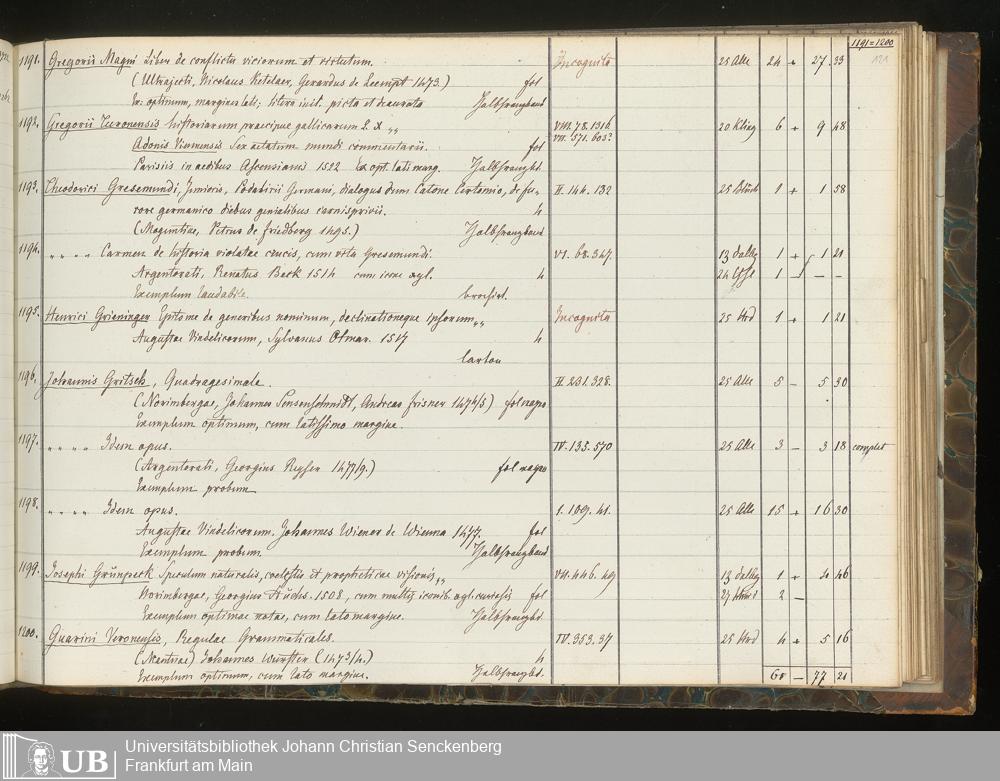 1191=1200
121
1191. Gregorii Magni Liber de conflictu viciorum et virtutum. Incognito 25 Alle 24 + 27. 33
(Ultrajecti, Nicolaus Ketelaer, Gerardus de Leempt 1473.) fol
Ex: optimum, margines lati; litera init. picta et deaurata Halbfranzband
1192. Gregorii Turonensis historiarum praecipue gallicarum L. X „ VIII. 78. 1316 20 Kling 6 + 9 48
Adonis Viennensis Sex aetatum mundi commentarii. fol VII. 571. 603?
Parisiis in aedibus Ascensianis 1522 Ex opt. lati marg. Halbfranzbd.
1193. Theodorici Gresemundi, Junioris, Podabirii Germani, dialogus dum Catone Certamio, de fu- II. 144. 132 25 1 + 1 58
rore germanico diebus genialibus carnisprivii. 4
(Maguntiae, Petrus de Friedberg 1495.) Halbfranzband
1194. „ „ „ „ Carmen de historia violatae crucis, cum vita Gresemundi. VI. 68. 347. 13 1 + 1 21
Argentorati, Renatus Beck 1514 cum icone xyl. 4 24 1 – – –
Exemplum laudabile. broschirt.
1195. Henrici Grieninger Epitome de generibus nominum, declinationeque ipsorum „ Incognita 25 1 + 1 21
Augustae Vindelicorum, Sylvanus Otmar. 1517 4
Carton
1196. Johannis Gritsch, Quadragesimale. II. 231. 328. 25 Alle 5 – 5 30
(Norimbergae, Johannes Sensenschmidt, Andreas Frisner 1474/5) fol
Exemplum optimum, cum latissimo margine.
1197. „ „ „ „ Idem opus. IV. 135. 570 25 Alle 3 – 3 18 complet
(Argentorati, Georgius Reyser 1477/9.) fol
Exemplum probum
1198. „ „ „ „ Idem opus. I. 109. 41. 25 Alle 15 + 16 30
Augustae Vindelicorum, Johannes Wiener de Wienna 1477. fol
Exemplum probum. Halbfranzband
1199. Josephi Grünpeck Speculum naturalis, coelestis et propheticae visionis „ VII. 446. 49 13 1 +
Norimbergae, Georgius Stuchs. 1508, cum multis iconib. xyl. fol 27 2 –
Exemplum optimae notae, cum lato margine. Halbfranzbd.
1200. Guarini Veronensis, Regulae Grammaticales. IV. 353. 37 25 4 + 5 16
(Mantuae) Johannes Wurster (1473/4.) 4
Exemplum optimum, cum lato margine. Halbfranzbd. – 77 21
UB
Universitätsbibliothek Johann Christian Senckenberg
Frankfurt am Main